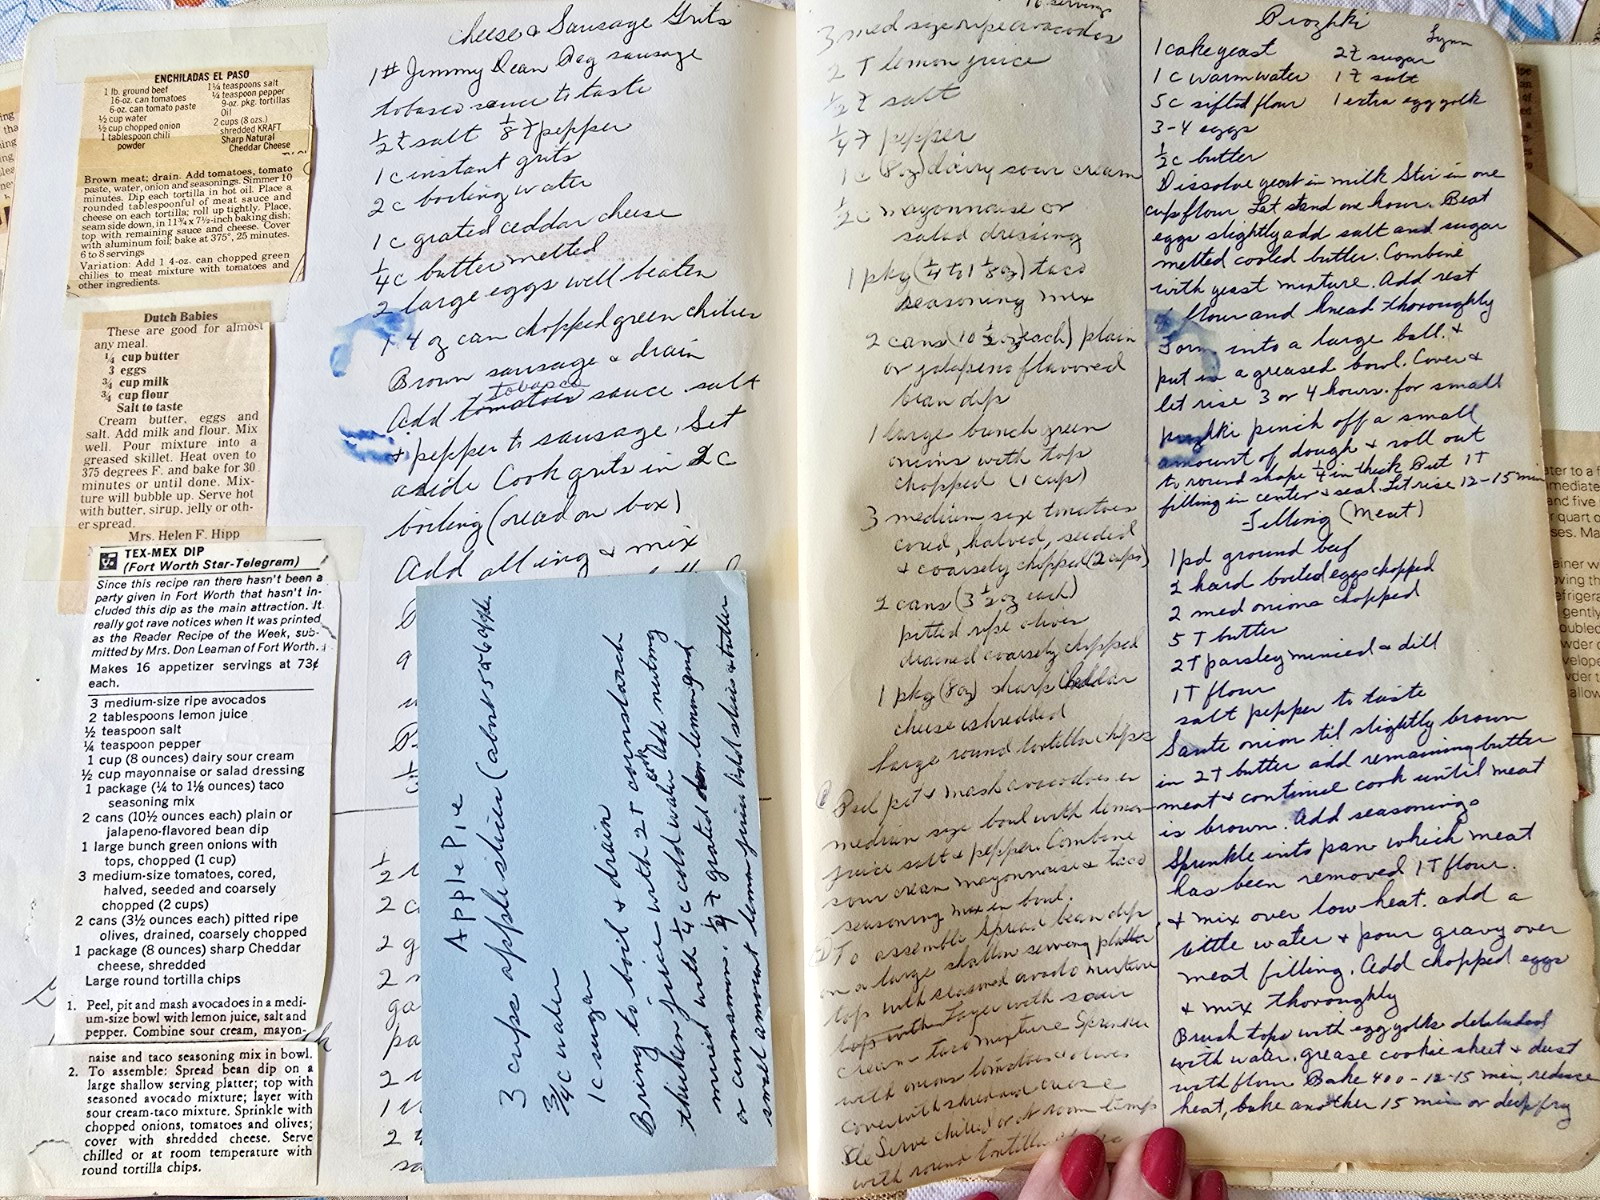 ENCHILADAS EL PASO
1 lb. ground beef
16-oz. can tomatoes
6-oz. can tomato paste
½ cup water
½ cup chopped onion
1 tablespoon chili
powder
1¼ teaspoons salt
¼ teaspoon pepper
9-oz. pkg. tortillas
Oil
2 cups (8 ozs.)
shredded KRAFT
Sharp Natural
Cheddar Cheese
Brown meat; drain. Add tomatoes, tomato
paste, water, onion and seasonings. Simmer 10
minutes. Dip each tortilla in hot oil. Place a
rounded tablespoonful of meat sauce and
cheese on each tortilla; roll up tightly. Place,
seam side down, in 11¾ x 7½-inch baking dish;
top with remaining sauce and cheese. Cover
with aluminum foil; bake at 375°, 25 minutes.
6 to 8 servings
Variation: Add 1 4-oz. can chopped green
chilies to meat mixture with tomatoes and
other ingredients.
Dutch Babies
These are good for almost
any meal.
¼ cup butter
3 eggs
¾ cup milk
¾ cup flour
Salt to taste
Cream butter, eggs and
salt. Add milk and flour. Mix
well. Pour mixture into a
greased skillet. Heat oven to
375 degrees F. and bake for 30
minutes or until done. Mix-
ture will bubble up. Serve hot
with butter, sirup, jelly or oth-
er spread.
Mrs. Helen F. Hipp
TEX-MEX DIP
(Fort Worth Star-Telegram)
Since this recipe ran there hasn't been a
party given in Fort Worth that hasn't in-
cluded this dip as the main attraction. It
really got rave notices when it was printed
as the Reader Recipe of the Week, sub-
mitted by Mrs. Don Leaman of Fort Worth.
Makes 16 appetizer servings at 73¢
each.
3 medium-size ripe avocados
2 tablespoons lemon juice
½ teaspoon salt
¼ teaspoon pepper
1 cup (8 ounces) dairy sour cream
½ cup mayonnaise or salad dressing
1 package (¼ to 1⅛ ounces) taco
seasoning mix
2 cans (10½ ounces each) plain or
jalapeno-flavored bean dip
1 large bunch green onions with
tops, chopped (1 cup)
3 medium-size tomatoes, cored,
halved, seeded and coarsely
chopped (2 cups)
2 cans (3½ ounces each) pitted ripe
olives, drained, coarsely chopped
1 package (8 ounces) sharp Cheddar
cheese, shredded
Large round tortilla chips
1. Peel, pit and mash avocados in a medi-
um-size bowl with lemon juice, salt and
pepper. Combine sour cream, mayon-
naise and taco seasoning mix in bowl.
2. To assemble: Spread bean dip on a
large shallow serving platter; top with
seasoned avocado mixture; layer with
sour cream-taco mixture. Sprinkle with
chopped onions, tomatoes and olives;
cover with shredded cheese. Serve
chilled or at room temperature with
round tortilla chips.
Cheese & Sausage Grits
1# Jimmy Dean Reg sausage
tobasco sauce to taste
½ t salt ⅛ t pepper
1 c instant grits
2 c boiling water
1 c grated ceddar cheese
¼ c butter melted
2 large eggs well beaten
1 4 oz can chopped green chilies
Brown sausage & drain
tobasco
Add tomatoes sauce salt
& pepper to sausage. Set
aside Cook grits in 2 c
boiling (read on box)
Add all ing & mix
Apple Pie
3 cups apple slices (about 5 or 6 apples
¾ c water
1 c sugar
Bring to boil & drain
thicken juice with 2 T cornstarch
mixed with ¼ c cold water Add nutmeg
or cinnamon. ¼ t grated lemon rind
small amount lemon juice Add slices & butter
16 servings
3 med size ripe avocados
2 T lemon juice
½ t salt
¼ t pepper
1 c (8 oz) dairy sour cream
½ c mayonnaise or
salad dressing
1 pkg (¼ to 1 ⅛ oz) taco
seasoning mix
2 cans (10 ½ oz each) plain
or jalapeno flavored
bean dip
1 large bunch green
onions with top
chopped (1 cup)
3 medium size tomatoes
cored, halved, seeded
& coarsely chopped (2 cups)
2 cans (3 ½ oz each)
pitted ripe olives
drained coarsely chopped
1 pkg (8 oz) sharp Cheddar
cheese shredded
large round tortilla chips
Peel pit & mash avocadoes in
medium size bowl with lemon
juice salt & pepper. Combine
sour cream mayonnaise & taco
seasoning mix in bowl.
To assemble Spread bean dip
on a large shallow serving platter
top with seasoned avacado mixture
layer with sour
cream taco mixture. Sprinkle
with onions tomatoes & olives
cover with shredded cheese
Serve chilled or at room temp
with round tortilla chips
Pirozhki
Lynn
1 cake yeast 2 t sugar
1 c warm water 1 t salt
5 c sifted flour 1 extra egg yolk
3-4 eggs
½ c butter
Dissolve yeast in milk Stir in one
cup flour Let stand one hour. Beat
eggs slightly add salt and sugar
melted cooled butter. Combine
with yeast mixture. Add rest
flour and knead thoroughly
Form into a large ball. &
put in a greased bowl. Cover &
let rise 3 or 4 hours. for small
pirozhki pinch off a small
amount of dough & roll out
to round shape ¼ in thick Put 1 T
filling in center & seal. Let rise 12-15 min
Filling (Meat)
1 pd ground beef
2 hard boiled eggs chopped
2 med onions chopped
5 T butter
2 T parsley minced & dill
1 T flour
salt pepper to taste
Saute onion til slightly brown
in 2 T butter add remaining butter
meat & continue cook until meat
is brown. Add seasonings
Sprinkle into pan which meat
has been removed 1 T flour.
& mix over low heat. add a
little water & pour gravy over
meat filling. Add chopped eggs
& mix thoroughly
Brush tops with egg yolks
with water. grease cookie sheet & dust
with flour Bake 400-12-15 min, reduce
heat, bake another 15 min or deep fry